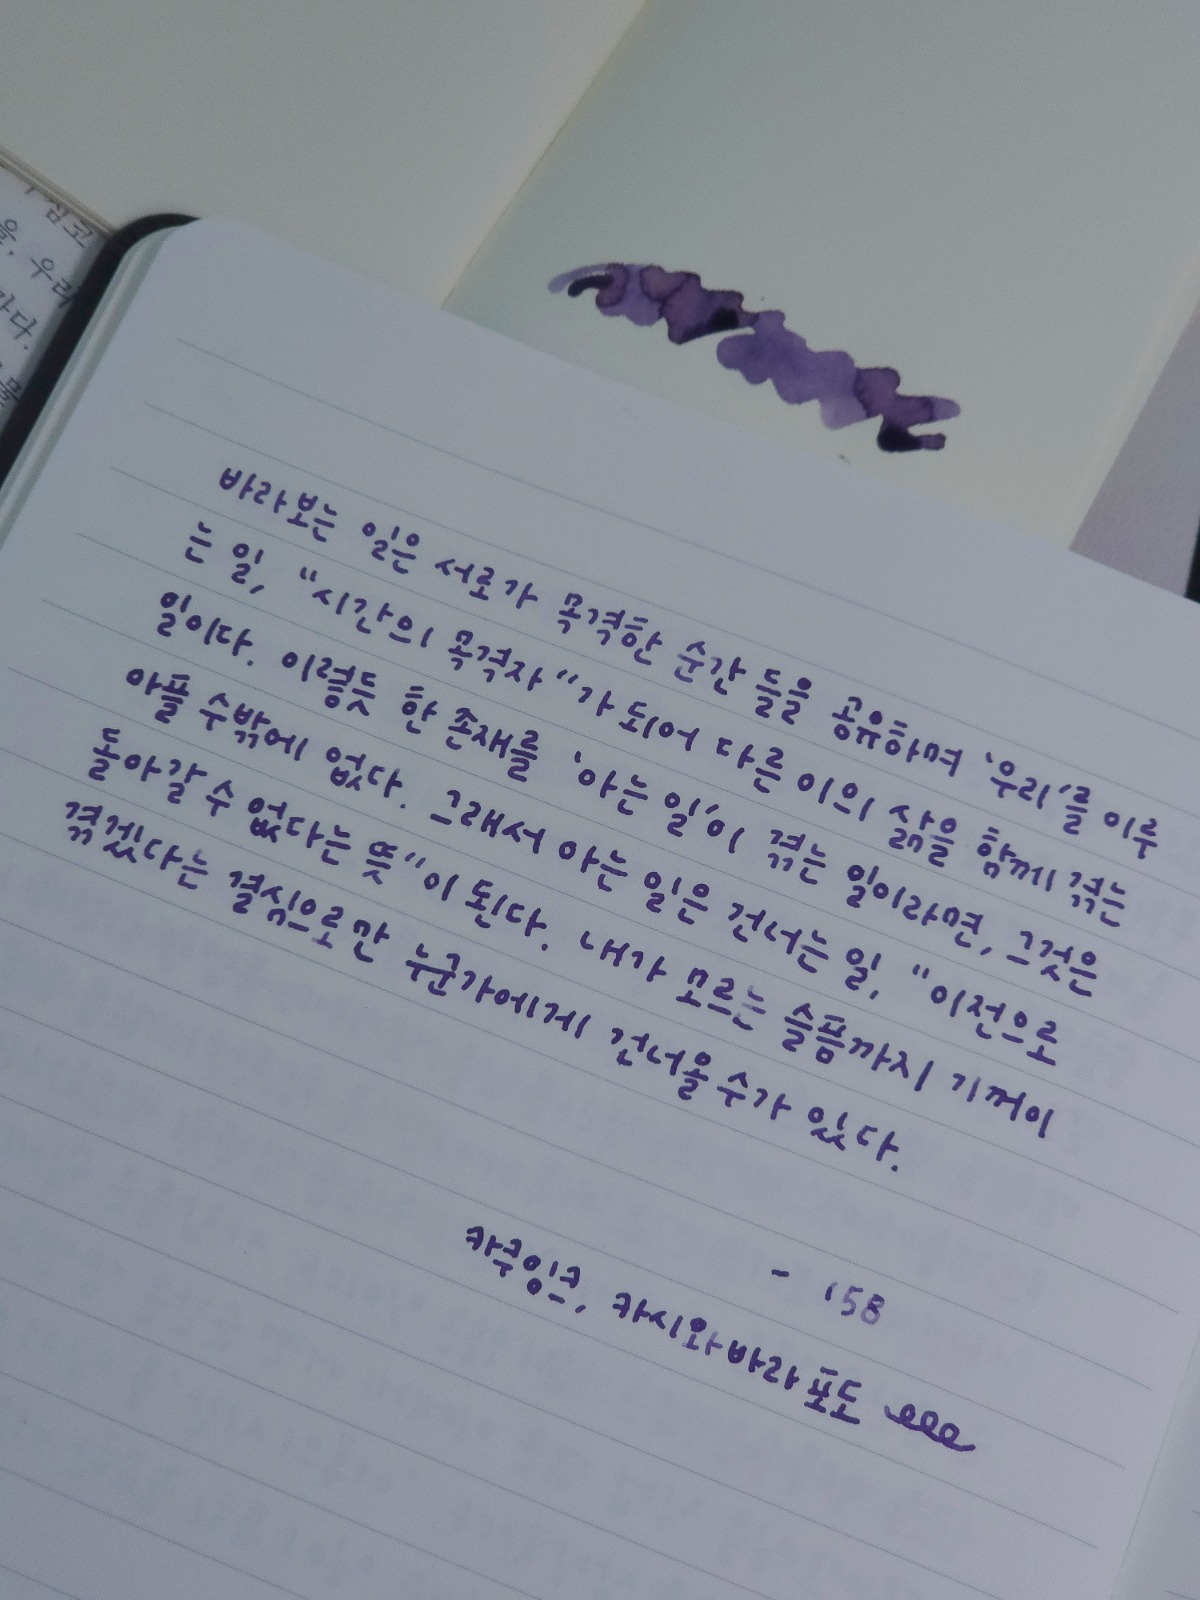 바라보는 일은 서로가 목격한 순간 들을 공유하며 '우리'를 이루
는 일, "시간의 목격자"가 되어 다른 이의 삶을 함께 겪는
일이다. 이렇듯 한 존재를 '아는 일'이 겪는 일이라면, 그것은
아플 수밖에 없다. 그래서 아는 일은 건너는 일, "이전으로
돌아갈 수 없다는 뜻"이 된다. 내가 모르는 슬픔까지 기꺼이
겪겠다는 결심으로만 누군가에게 건너올 수가 있다.
- 158
카쿠잉크, 카시와바라 포도
심코
을. 우리
다.